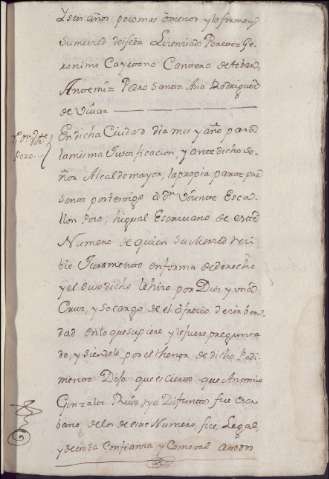 y seis años poco mas o menos y lo firmo y
su merced doi fee Licenciado
Geronimo Cayetano
Ante mi Pedro Santa Ana Rodriguez
de Vivar
En dicha Ciudad dia mes y año para
la misma Justificacion y ante dicho Se
ñor Alcalde mayor, la propia parte pre
sento por testigo a Dn Vicente Escallon
Escrivano de este
Numero de quien su Merced reci
bio Juramento en forma de derecho
y el suso dicho le hizo por Dios y una
Cruz, y so cargo de el ofrecio decir ver
dad en lo que supiere y le fuere pregunta
do, y siendolo por el thenor de dicho Pedi
mento Dijo que es cierto que Antonio
Gonzalez ya Difunto fue Escri
bano de los de este Numero, fue Legal,
y de toda Confianza y Como tal